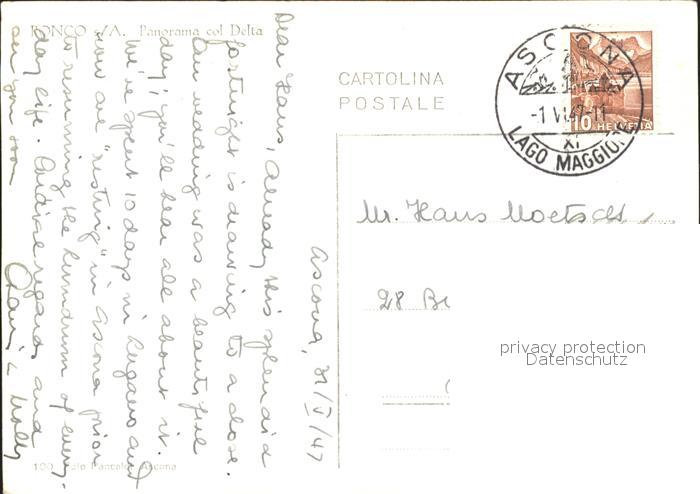 RONCO s/A. Panorama col Delta
CARTOLINA
POSTALE
ASCONA
-1 VI 47-11
XI
LAGO MAGGIORE
10 HELVETIA
Ascona, 31/V/47
Dear Hans, Already this splendid
fortnight is drawing to a close.
Our wedding was a beautiful
day; you'll hear all about it.
We've spent 10 days in Lugano and
now are "resting" in Ascona prior
to resuming the humdrum of every-
day life. Cordial regards and
see you soon
& Molly
Mr. Hans
28
privacy protection
Datenschutz
100 Foto Pancaldi Ascona